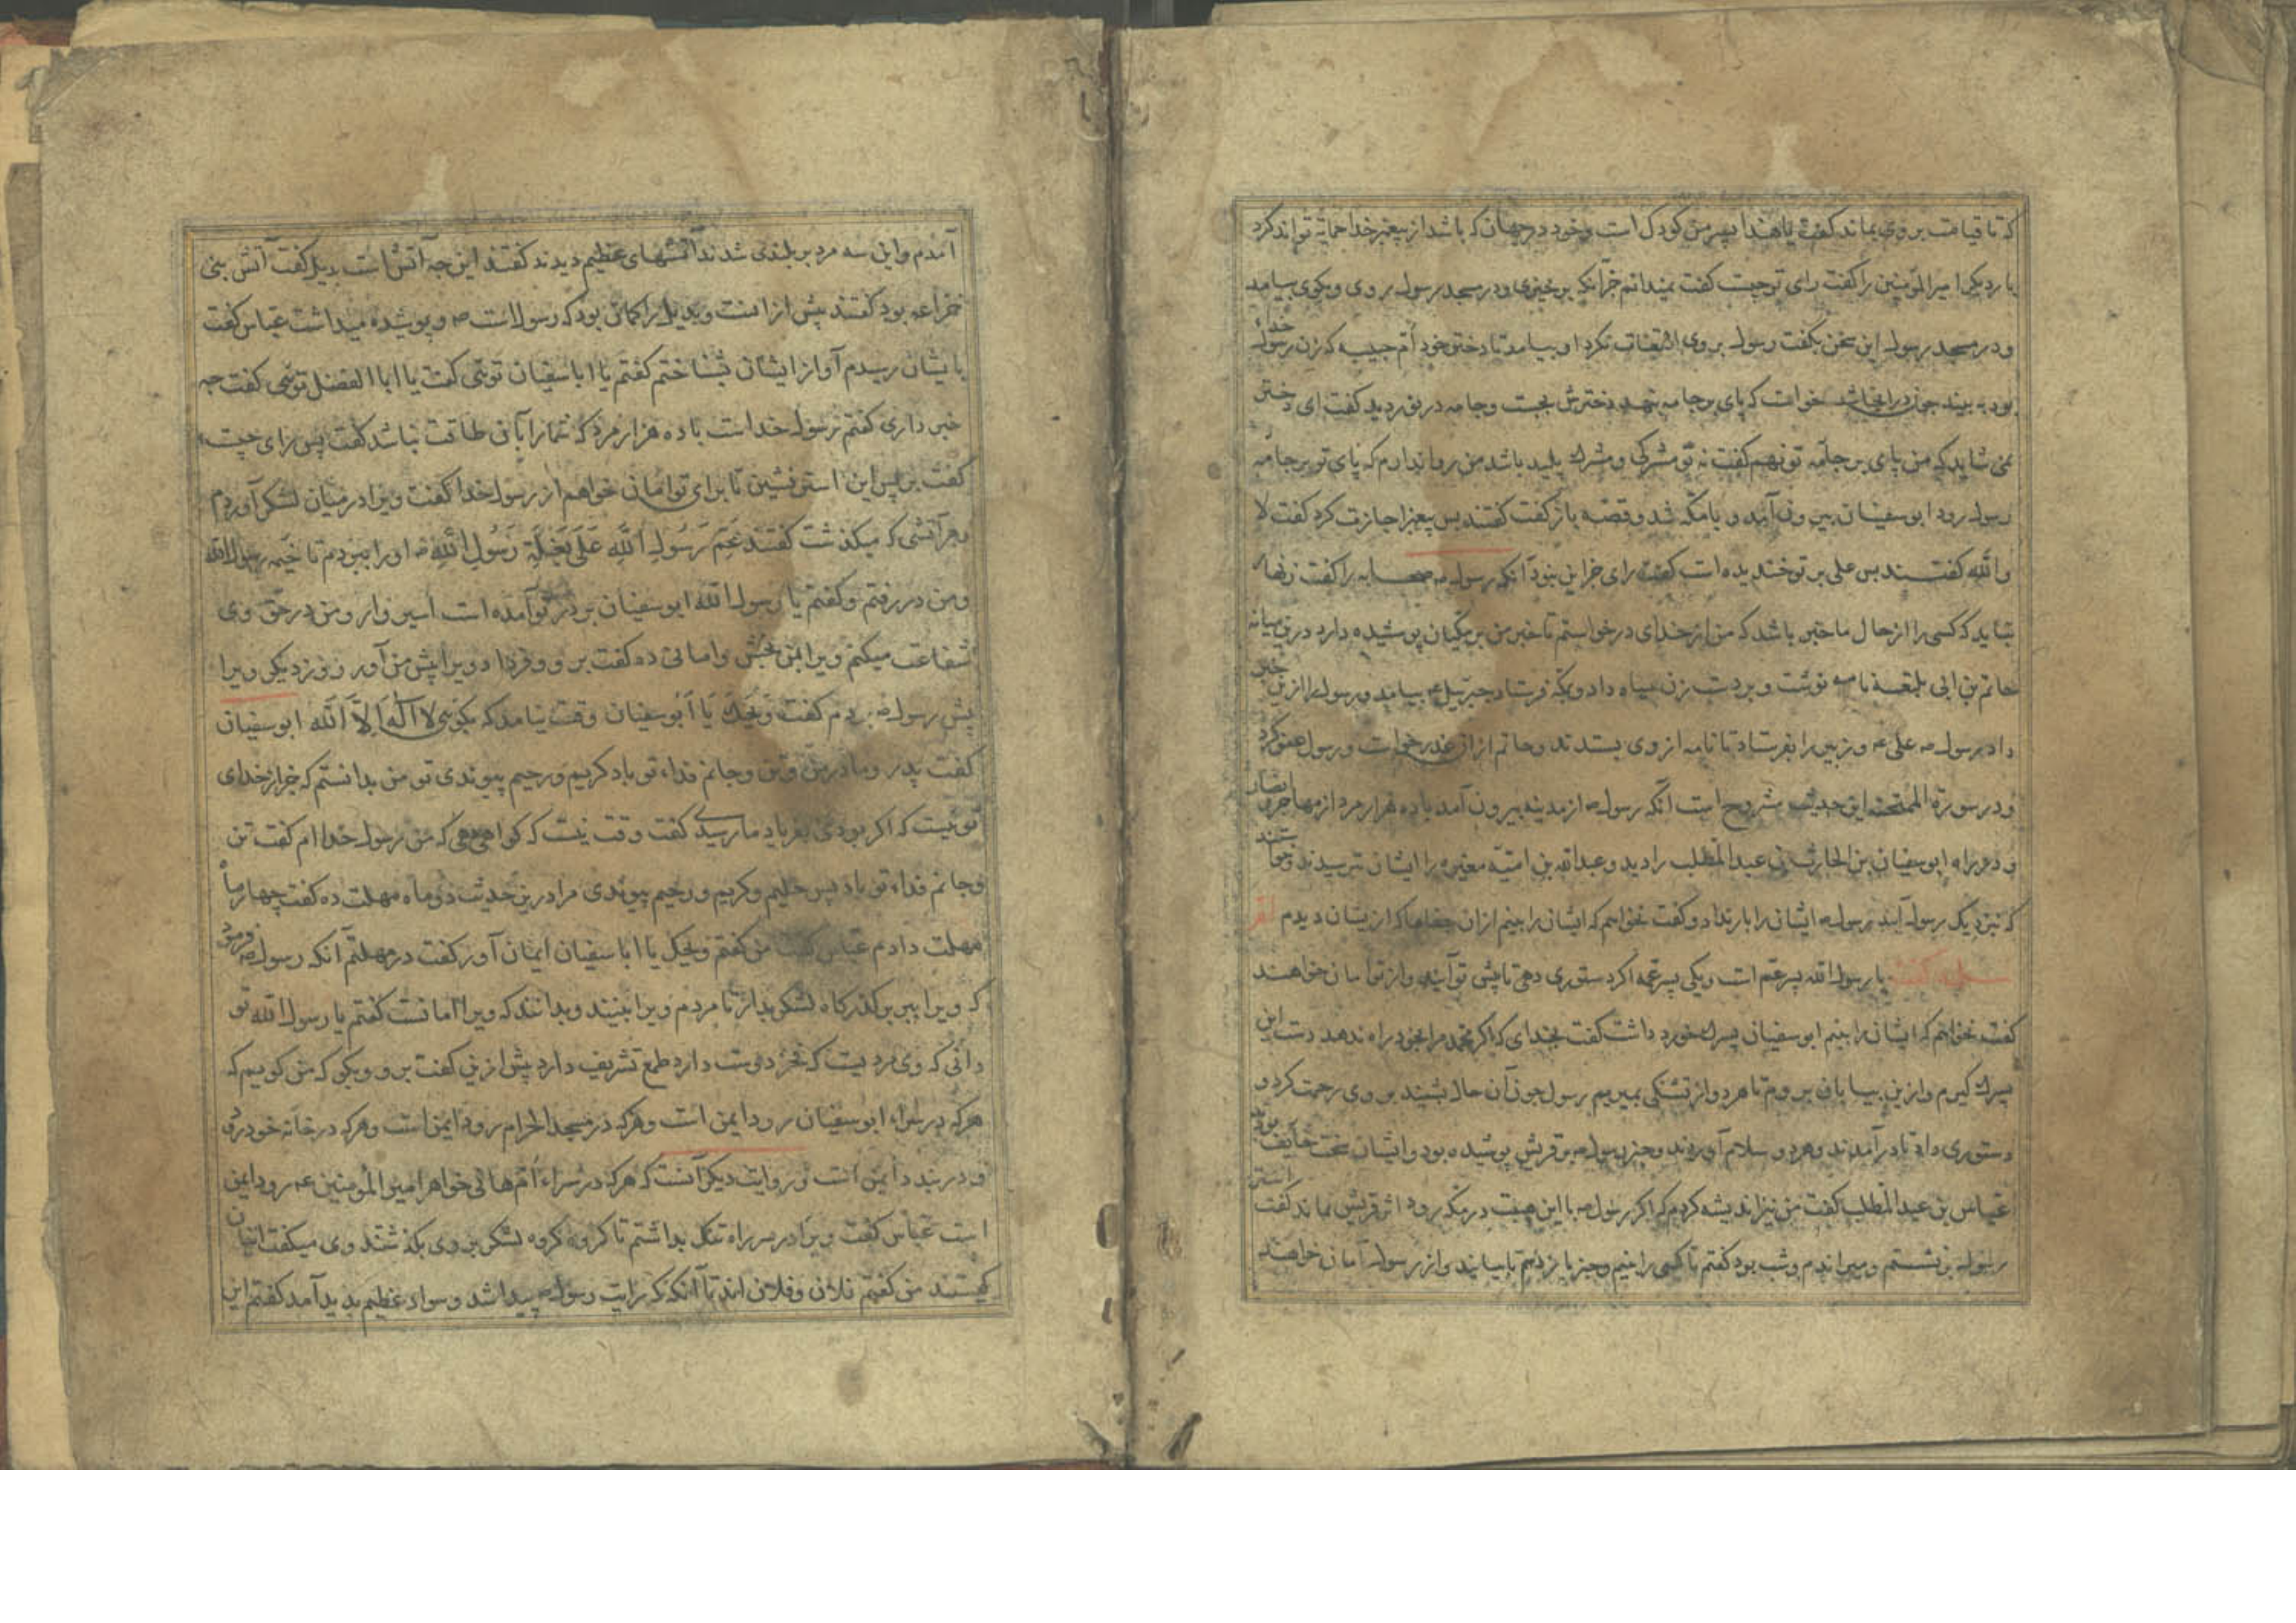 که تا قیامت بر وی بماند گفت یا هند این پسر من کودک است و خود در جهان که باشد از پیغمبر خدا حمایة تواند کرد
بار دیگر امیر المؤمنین را گفت رای تو چیست گفت نمیدانم جز آنکه برخیزی و در مسجد رسول روی و بگوی بیامد
و در مسجد رسول این سخن بگفت رسول بر وی التفات نکرد او بیامد تا دختر خود ام حبیبه که زن رسول خدا
بود به بیند چون در انجا شد خواست که پای بر جامه نهد دخترش بجست و جامه در نوردید گفت ای دختر
نمی شاید که من پای بر جامه تو نهم گفت نه تو مشرکی و مشرک پلید باشد من روا ندارم که پای تو بر جامه
رسول رود ابو سفیان بیرون آمد و بامکه شد و قصه باز گفت گفتند پس پیغمبر اجازت کرد گفت لا
والله گفتند پس علی بر تو خندیده است گفت رای جز این نبود آنکه رسول صحابه را گفت زنهار
نباید که کسی را از حال ما خبر باشد که من از خدای درخواستم تا خبر من بر مکیان پوشیده دارد درین میانه
حاتم بن ابی بلتعه نامه نوشت و بردست زن سیاه داد و بمکه فرستاد جبرئیل بیامد و رسول را ازین خبر
داد رسول علی و زبیر را بفرستاد تا نامه از وی بستدند و حاتم از آن عذر خواست و رسول عفو کرد
و در سورة الممتحنه این حدیث مشروح است آنکه رسول از مدینه بیرون آمد با ده هزار مرد از مهاجر و انصار
و در راه ابو سفیان بن الحارث بن عبد المطلب را دید و عبد الله بن امیه مغیره را ایشان ترسیدند
که نزدیک رسول آیند رسول ایشان را بار نداد و گفت نخواهم که ایشان را بینم از آن جفاها که از ایشان دیدم
سلمه گفت یا رسول الله پسر عم است و یکی پسر عمه اگر دستوری دهی تا پیش تو آیند و از تو امان خواهند
گفت نخواهم که ایشان را بینم ابو سفیان پسرک خورد داشت گفت بخدای که اگر محمد مرا بخود راه ندهد دست این
پسرک گیرم و ازین بیابان بروم تا هر دو از تشنگی بمیریم رسول چون آن حال بشنید بر وی رحمت کرد و
دستوری داد تا درآمدند و هر دو سلام آوردند و خبر رسول بر قریش پوشیده بود و ایشان سخت خایف بودند
عباس بن عبد المطلب گفت من نیز اندیشه کردم که اگر رسول با این هیبت در مکه رود اثر قریش نماند گفت
رسول بر نشستم و میراندم و شب بود گفتم تا کسی را بینم و خبر باز دهم تا بیایند و از رسول امان خواهند
آمدم و این سه مرد بر بلندی شدند آتشهای عظیم دیدند گفتند این چه آتش است بدیل گفت آتش بنی
خزاعه بود گفتند بیش از انست و بدیل را گمان بود که رسول است و پوشیده میداشت عباس گفت
بایشان رسیدم آواز ایشان بشناختم گفتم یا ابا سفیان توئی گفت یا ابا الفضل توئی گفت چه
خبر داری گفتم رسول خداست با ده هزار مرد که شما را با آن طاقت نباشد گفت پس رای چیست
گفت بر پس این استر نشین تا برای تو امان خواهم از رسول خدا گفت ویرا در میان لشکر آوردم
و هر آتشی که میگذشت گفتند عم رسول الله علی بغلة رسول الله او را ببردم تا خیمه رسول الله
و من در رفتم و گفتم یا رسول الله ابو سفیان بر در تو آمده است اسیروار و من در حق وی
شفاعت میکنم ویرا بمن بخش و امانی ده گفت برو و فردا ویرا پیش من آور روز دیگر ویرا
پیش رسول بردم گفت ویحک یا ابو سفیان وقت نیامد که بگوئی لا اله الا الله ابو سفیان
گفت پدر و مادر من و تن و جانم فداء تو باد کریم و رحیم پیوندی تو من بدانستم که جز از خدای
تو نیست که اگر بودی بفریاد ما رسیدی گفت وقت نیست که گواهی دهی که من رسول خدا ام گفت تن
و جانم فداء تو باد بس حلیم و کریم و رحیم پیوندی مرا درین حدیث دو ماه مهلت ده گفت چهار ماه
مهلت دادم عباس گفت من گفتم ویحک یا ابا سفیان ایمان آور گفت در مهلتم آنکه رسول فرمود
که ویرا ببر بر گذرگاه لشکر بدار تا مردم ویرا ببینند و بدانند که ویرا امانست گفتم یا رسول الله تو
دانی که وی مردیست که فخر دوست دارد طمع تشریف دارد بیش ازین گفت برو و بگو که من گویم که
هر که در سراء ابو سفیان رود ایمن است و هر که در مسجد الحرام رود ایمن است و هر که در خانه خود رود
و در ببندد ایمن است و روایت دیگر آنست که هر که در سراء ام هانی خواهر امیر المؤمنین رود ایمن
است عباس گفت ویرا در سر راه تنگ بداشتم تا گروه گروه لشکر بر وی بگذشتند وی میگفت اینان
کیستند من گفتم فلان و فلان اند تا آنکه که رایت رسول پیدا شد و سواد عظیم پدید آمد گفتم این